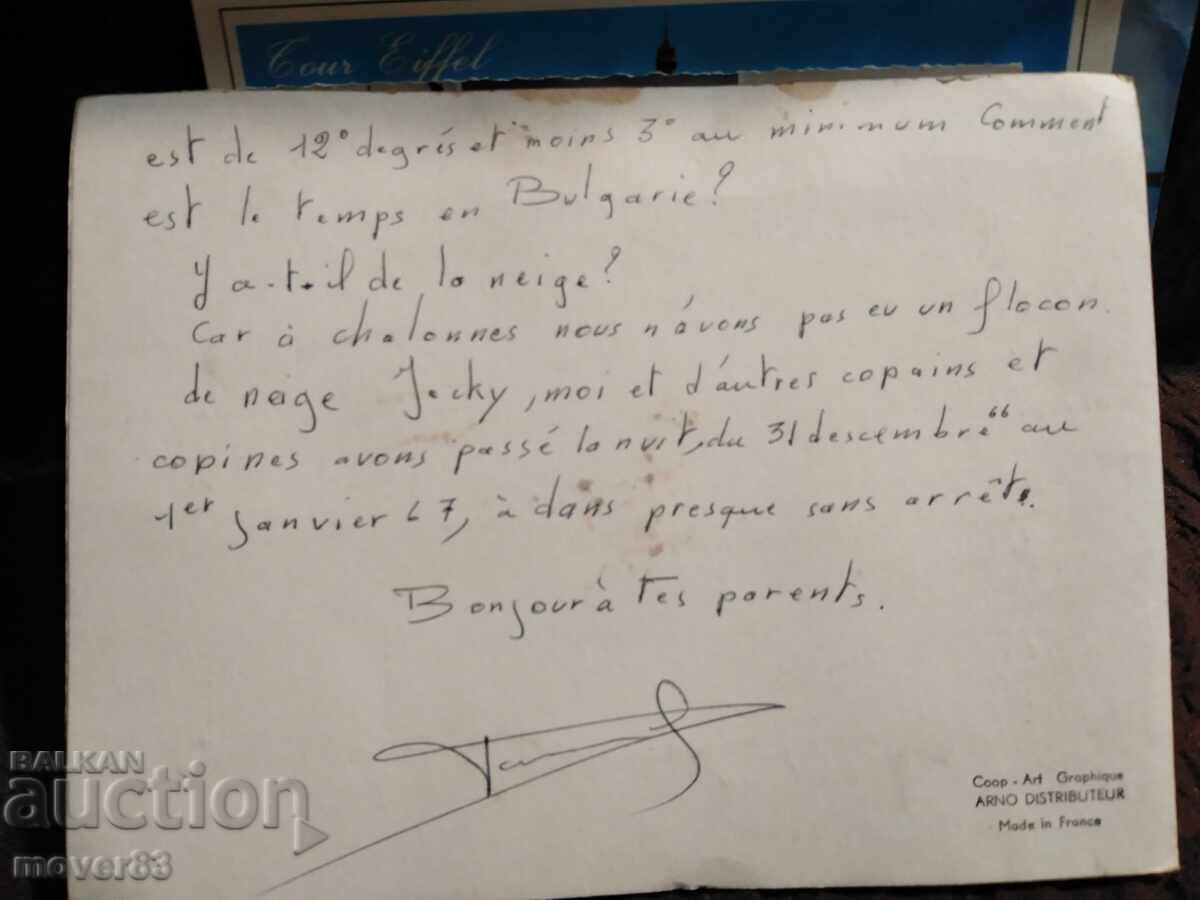 Tour Eiffel
est de 12° degrés et moins 3° au minimum Comment
est le temps en Bulgarie?
Y a-t-il de la neige?
Car à chalonnes nous n'avons pas eu un flocon.
de neige Jecky, moi et d'autres copains et
copines avons passé la nuit, du 31 descembre 66 au
1er Janvier 67, à dans presque sans arrêt.
Bonjour à tes parents.
Coop - Art Graphique
ARNO DISTRIBUTEUR
Made in France
BALKAN
auction
mover83